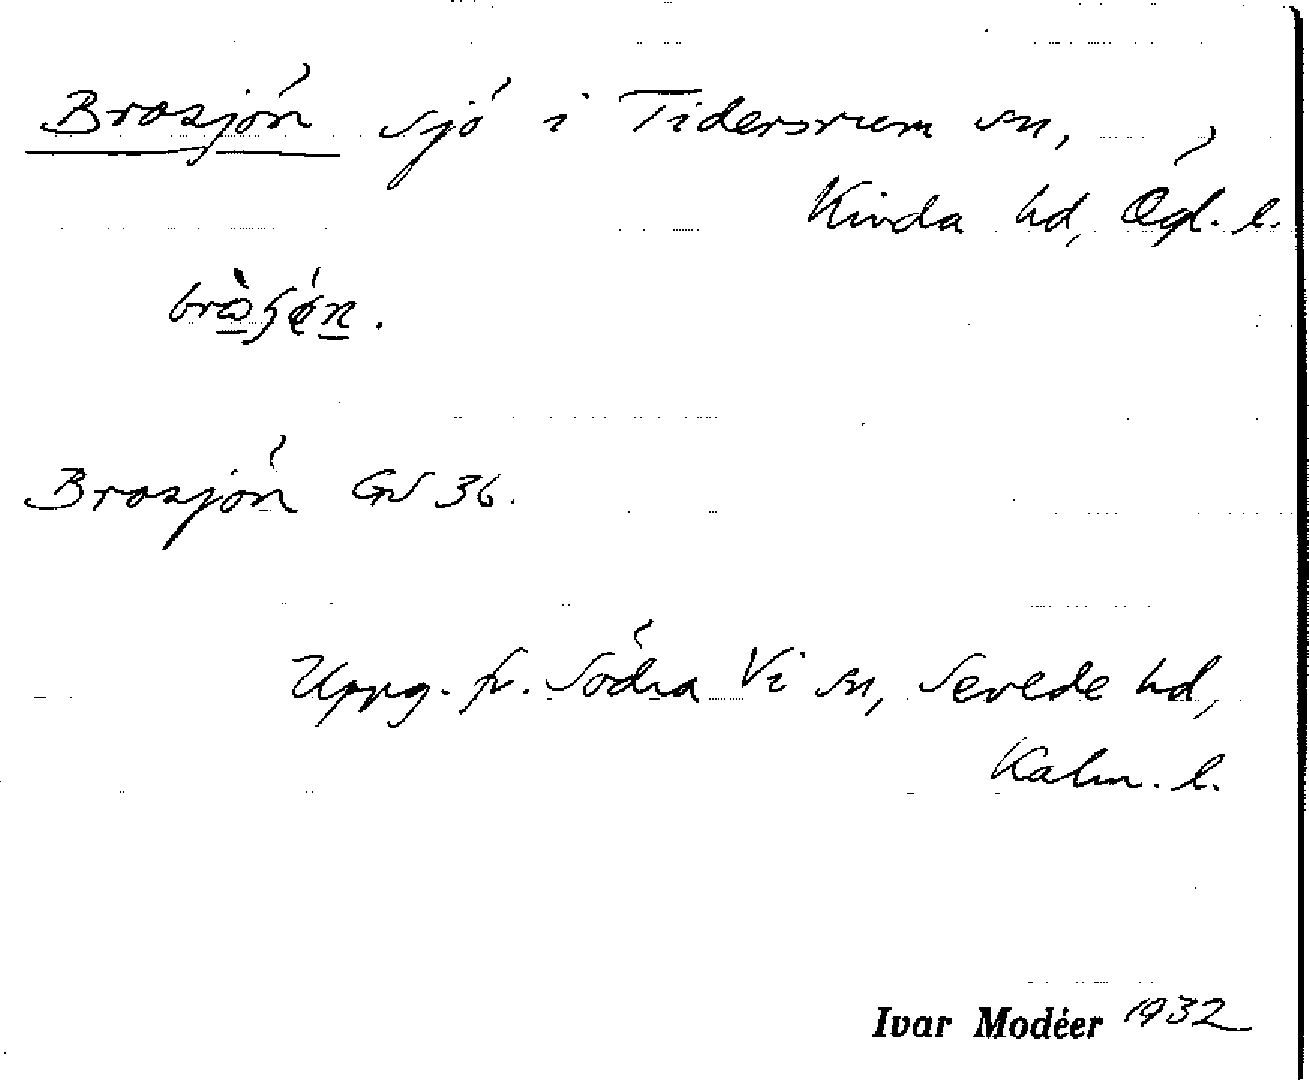 Brosjön sjö i Tidersrum sn,
Kinda hd, Ögl. l.
Brosjön GS 36.
Uppg. fr. Södra Vi sn, Sevede hd,
Kalm. l.
Ivar Modéer 1932